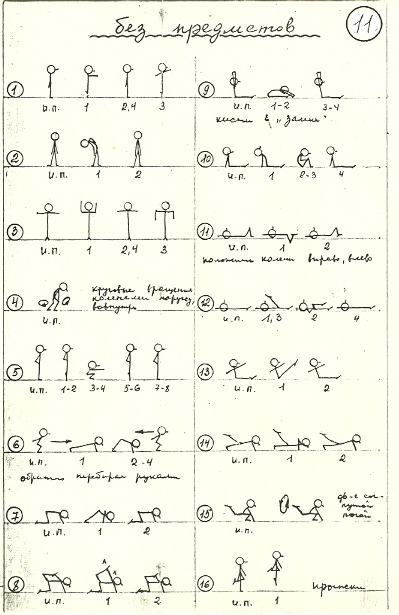 без предметов
11.
1
и.п. 1 2,4 3
2
и.п. 1 2
3
и.п. 1 2,4 3
4
круговые вращения
коленями наружу,
вовнутрь
и.п.
5
и.п. 1-2 3-4 5-6 7-8
6
и.п. 1 2-4
обратно перебирая руками
7
и.п. 1 2
8
и.п. 1 2
9
и.п. 1-2 3-4
кисти в „замке"
10
и.п. 1 2-3 4
11
и.п. 1 2
положить колени вправо, влево
12
и.п. 1,3 2 4
13
и.п. 1 2
14
и.п. 1 2
15
дв-е сог-
нутой
ногой
и.п.
16
прыжки
и.п. 1